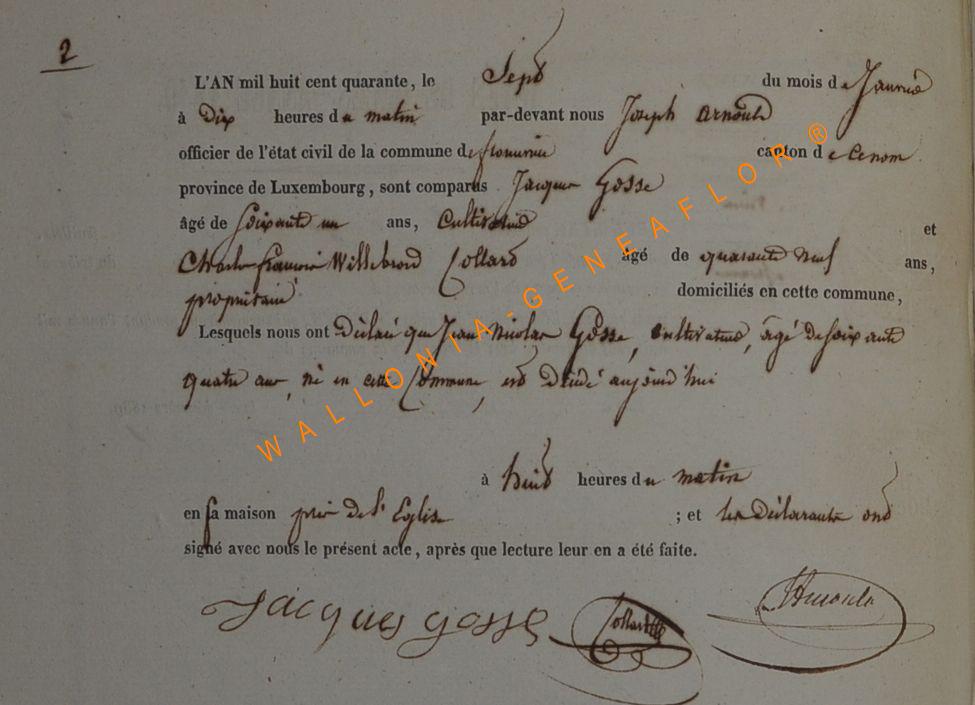 2
L'AN mil huit cent quarante, le Sept du mois de Janvier
à Dix heures du matin par-devant nous Joseph Arnould
officier de l'état civil de la commune de canton de
province de Luxembourg, sont comparus Jacques Gosse
âgé de Soixante un ans, Cultivateur et
Charles françois Willebrord Collard âgé de quarante neuf ans,
propriétaire domiciliés en cette commune,
Lesquels nous ont Déclaré que Jean Nicolas Gosse, Cultivateur, âgé de Soixante
quatre ans, né en cette Commune, est Décédé aujourd'hui
à huit heures du matin
en sa maison près de l'Eglise ; et les Déclarants ont
signé avec nous le présent acte, après que lecture leur en a été faite.
Jacques gosse Collard Arnould
WALLONIA-GENEAFLOR®